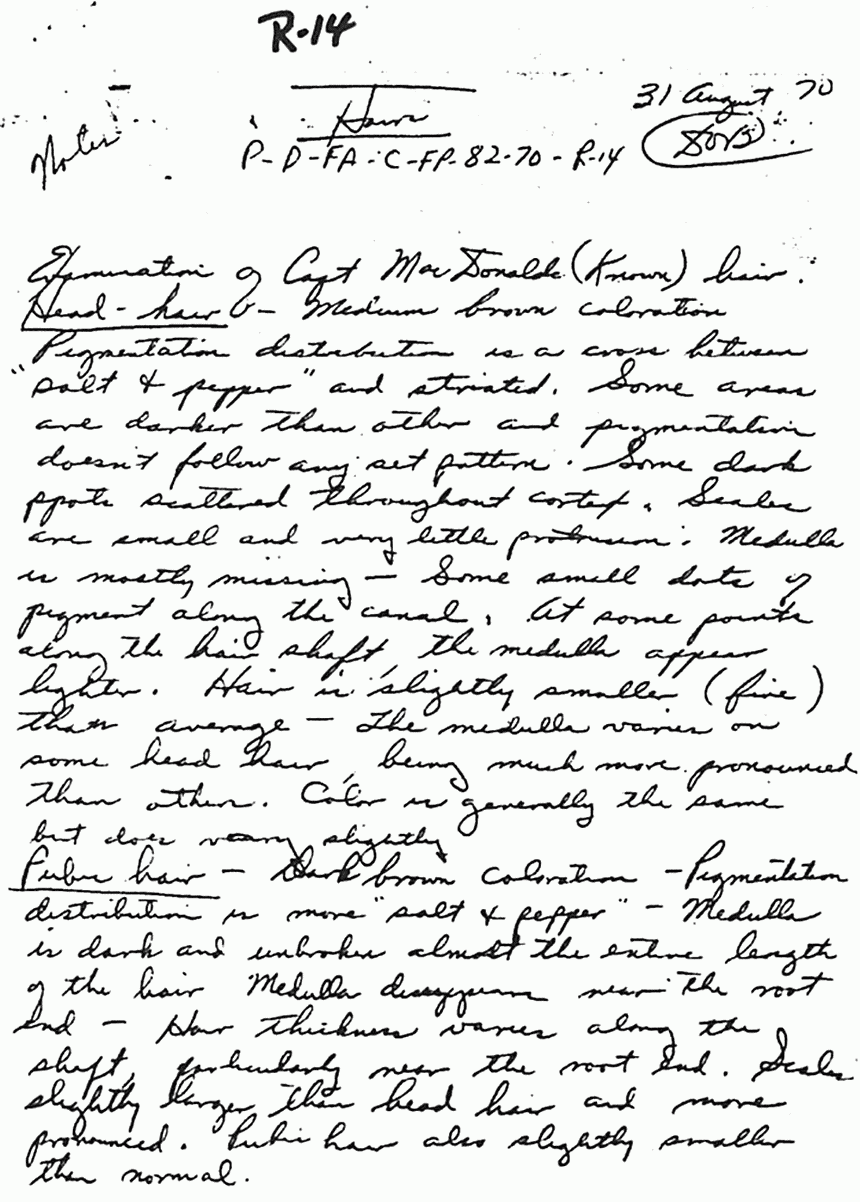 R-14
31 August 70
Hairs
Notes
P-D-FA-C-FP-82-70-R-14
Examination of Capt MacDonalds (Known) hair.
Head-hair - Medium brown coloration
Pigmentation distribution is a cross between
"salt & pepper" and striated. Some areas
are darker than other and pigmentation
doesn't follow any set pattern. Some dark
spots scattered throughout cortex. Scales
are small and very little protrusion. Medulla
is mostly missing - Some small dots of
pigment along the canal. At some points
along the hair shaft, the medulla appear
lighter. Hair is slightly smaller (fine)
than average - The medulla varies on
some head hair, being much more pronounced
than others. Color is generally the same
but does vary slightly
Pubic hair - Dark brown coloration - Pigmentation
distribution is more "salt & pepper" - Medulla
is dark and unbroken almost the entire length
of the hair Medulla disappears near the root
end - Hair thickness varies along the
shaft, particularly near the root end. Scales
slightly larger than head hair and more
pronounced. Pubic hair also slightly smaller
than normal.